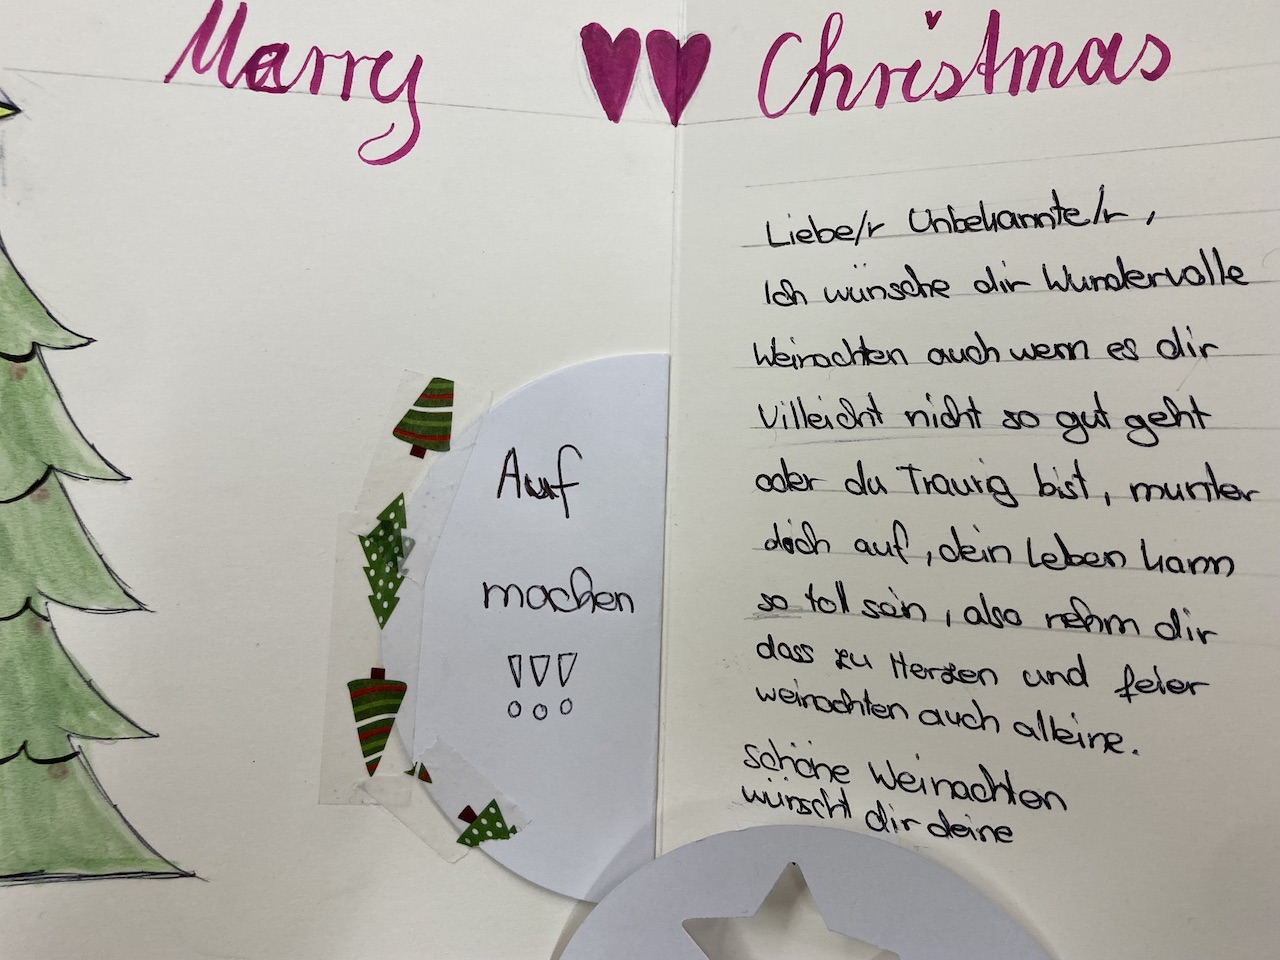 Marry Christmas
Auf
machen
!!!
Liebe/r Unbekannte/r,
Ich wünsche dir Wundervolle
Weinachten auch wenn es dir
Villeicht nicht so gut geht
oder du Traurig bist, munter
dich auf, dein Leben kann
so toll sein, also nehm dir
dass zu Herzen und feier
weinachten auch alleine.
schöne Weinachten
wünscht dir deine